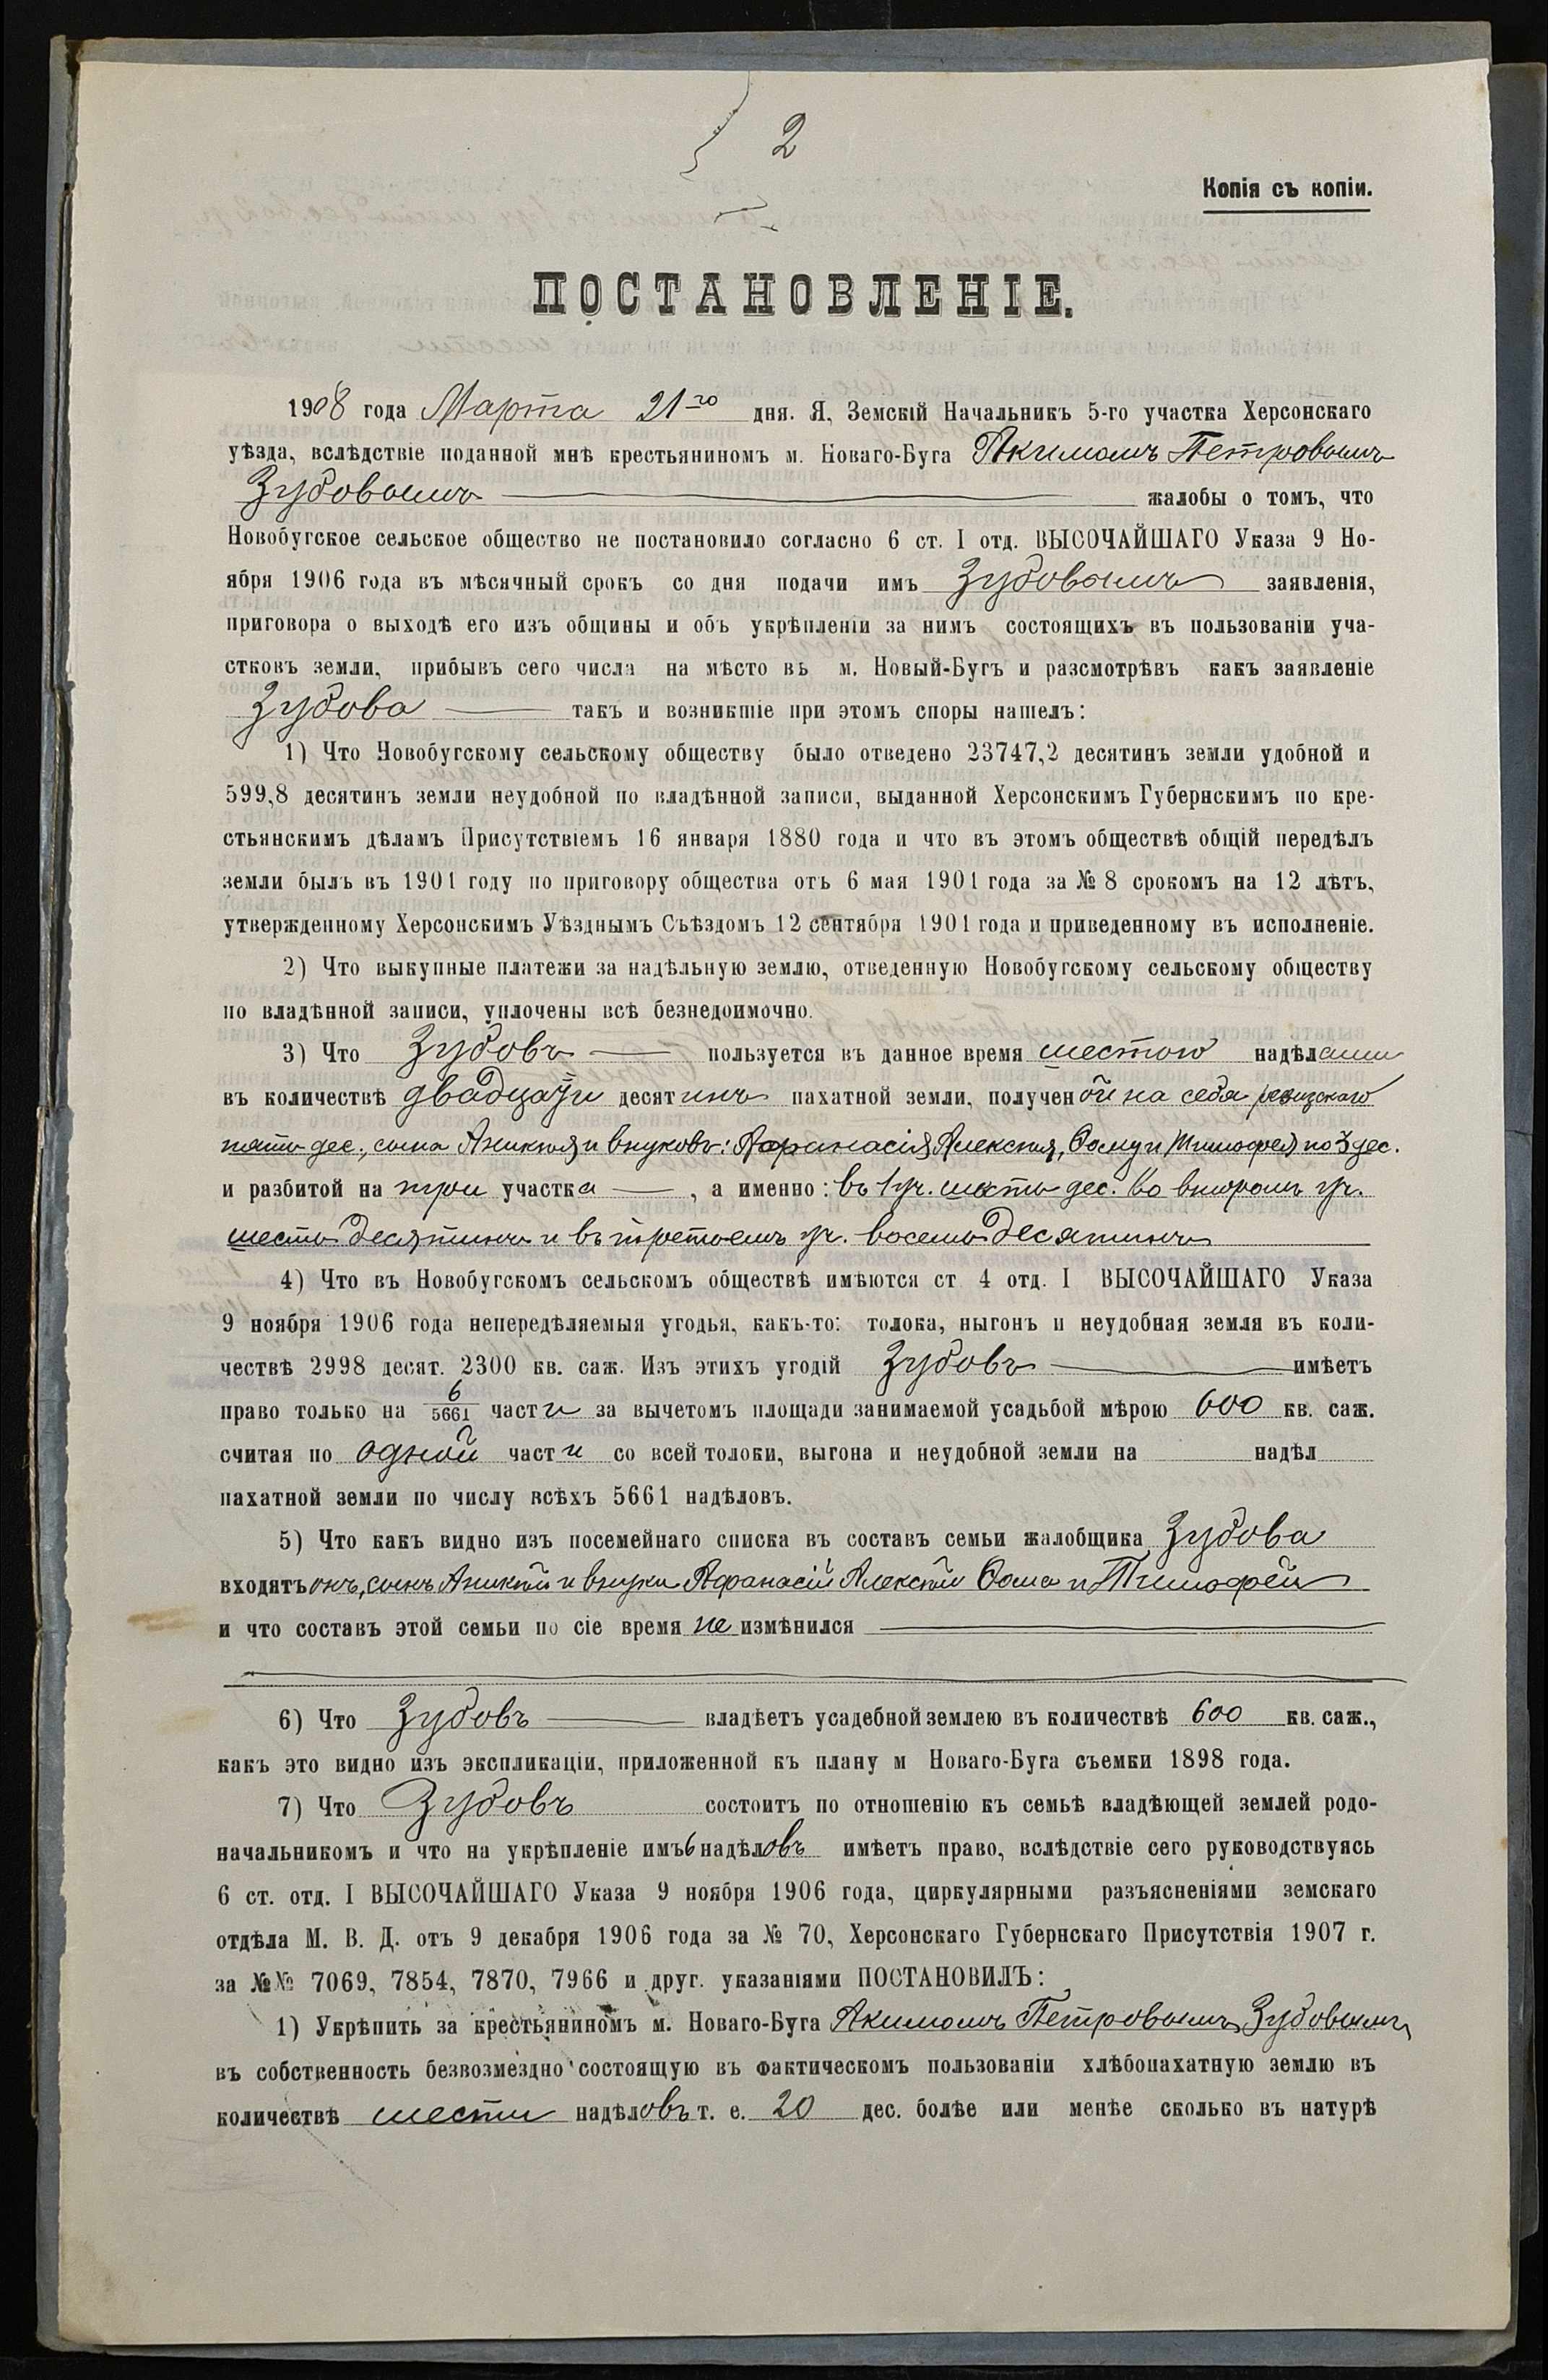 2
Копія съ копіи.
ПОСТАНОВЛЕНІЕ.
1908 года Марта 21го дня. Я, Земскій Начальникъ 5-го участка Херсонскаго
уѣзда, вслѣдствіе поданной мнѣ крестьяниномъ м. Новаго-Буга Акимомъ Петровымъ
Зубовымъ жалобы о томъ, что
Новобугское сельское общество не постановило согласно 6 ст. I отд. ВЫСОЧАЙШАГО Указа 9 Но-
ября 1906 года въ мѣсячный срокъ со дня подачи имъ Зубовымъ заявленія,
приговора о выходѣ его изъ общины и объ укрѣпленіи за нимъ состоящихъ въ пользованіи уча-
стковъ земли, прибывъ сего числа на мѣсто въ м. Новый-Бугъ и разсмотрѣвъ какъ заявленіе
Зубова такъ и возникшіе при этомъ споры нашелъ:
1) Что Новобугскому сельскому обществу было отведено 23747,2 десятинъ земли удобной и
599,8 десятинъ земли неудобной по владѣнной записи, выданной Херсонскимъ Губернскимъ по кре-
стьянскимъ дѣламъ Присутствіемъ 16 января 1880 года и что въ этомъ обществѣ общій передѣлъ
земли былъ въ 1901 году по приговору общества отъ 6 мая 1901 года за № 8 срокомъ на 12 лѣтъ,
утвержденному Херсонскимъ Уѣзднымъ Съѣздомъ 12 сентября 1901 года и приведенному въ исполненіе.
2) Что выкупные платежи за надѣльную землю, отведенную Новобугскому сельскому обществу
по владѣнной записи, уплочены всѣ безнедоимочно.
3) Что Зубовъ пользуется въ данное время шестью надѣлами
въ количествѣ двадцати десятинъ пахатной земли, полученой на себя ревизскаго
пять дес., сына Аникія и внуковъ: Афанасія Алексія, Ѳому и Тимофея по 3 дес.
и разбитой на три участка, а именно: въ 1 уч. шесть дес. во второмъ уч.
шесть десятинъ и въ третьемъ уч. восемь десятинъ
4) Что въ Новобугскомъ сельскомъ обществѣ имѣются ст 4 отд. I ВЫСОЧАЙШАГО Указа
9 ноября 1906 года непередѣляемыя угодья, какъ-то: толока, выгонъ и неудобная земля въ коли-
чествѣ 2998 десят. 2300 кв. саж. Изъ этихъ угодій Зубовъ имѣетъ
право только на 6/5661 части за вычетомъ площади занимаемой усадьбой мѣрою 600 кв. саж.
считая по одной части со всей толоки, выгона и неудобной земли на надѣл
пахатной земли по числу всѣхъ 5661 надѣловъ.
5) Что какъ видно изъ посемейнаго списка въ составъ семьи жалобщика Зубова
входятъ онъ, сынъ Аникій и внуки Афанасій Алексій Ѳома и Тимофей
и что составъ этой семьи по сіе время не измѣнился
6) Что Зубовъ владѣетъ усадебной землею въ количествѣ 600 кв. саж.,
какъ это видно изъ экспликаціи, приложенной къ плану м Новаго-Буга съемки 1898 года.
7) Что Зубовъ состоитъ по отношенію къ семьѣ владѣющей землей родо-
начальникомъ и что на укрѣпленіе имъ 6 надѣловъ имѣетъ право, вслѣдствіе сего руководствуясь
6 ст. отд. I ВЫСОЧАЙШАГО Указа 9 ноября 1906 года, циркулярными разъясненіями земскаго
отдѣла М. В. Д. отъ 9 декабря 1906 года за № 70, Херсонскаго Губернскаго Присутствія 1907 г.
за №№ 7069, 7854, 7870, 7966 и друг. указаніями ПОСТАНОВИЛЪ:
1) Укрѣпить за крестьяниномъ м. Новаго-Буга Акимомъ Петровымъ Зубовымъ
въ собственность безвозмездно состоящую въ фактическомъ пользованіи хлѣбопахатную землю въ
количествѣ шести надѣловъ т. е. 20 дес. болѣе или менѣе сколько въ натурѣ